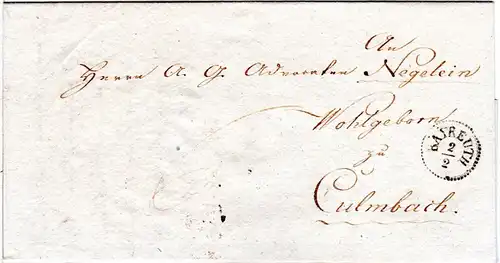 An
Herrn A. G. Advocaten Negelein
Wohlgeborn
zu
Culmbach.
BAYREUTH
2
2